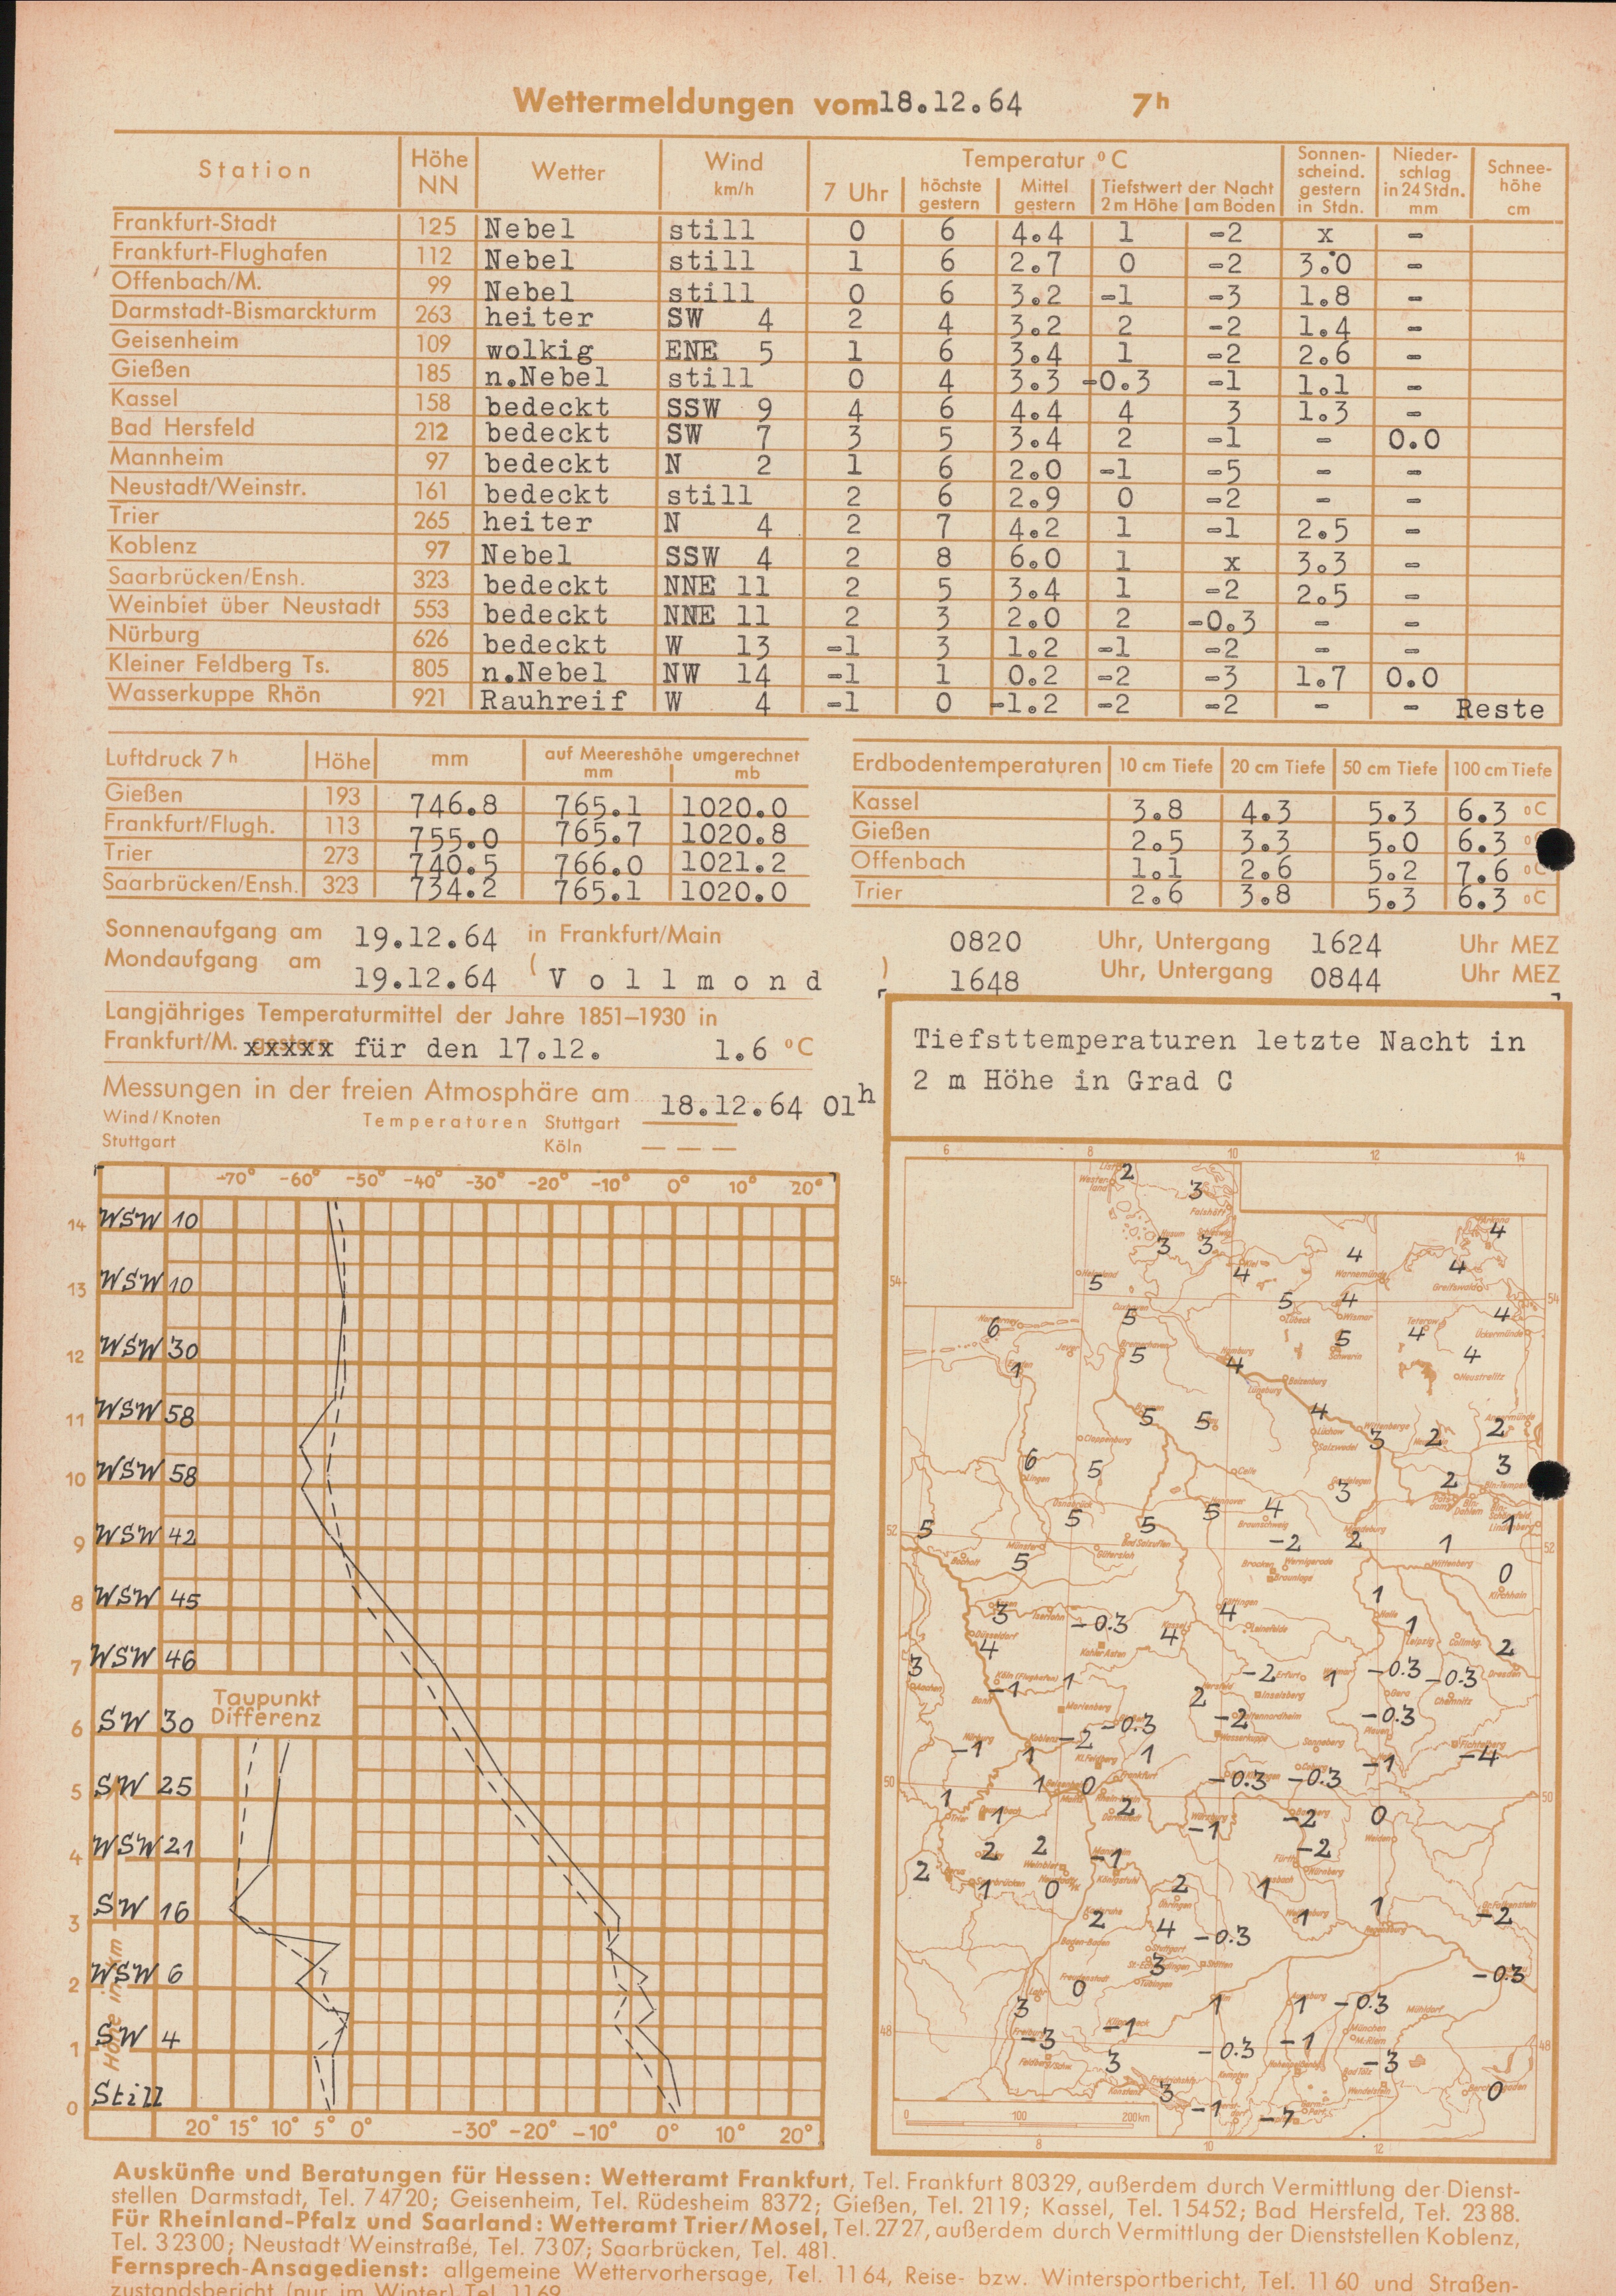 Wettermeldungen vom 18.12.64 7h
Station Höhe NN Wetter Wind km/h Temperatur °C Sonnenscheind. gestern in Stdn. Niederschlag in 24 Stdn. mm Schneehöhe cm
7 Uhr höchste gestern Mittel gestern Tiefstwert der Nacht 2 m Höhe am Boden
Frankfurt-Stadt 125 Nebel still 0 6 4.4 1 -2 x -
Frankfurt-Flughafen 112 Nebel still 1 6 2.7 0 -2 3.0 -
Offenbach/M. 99 Nebel still 0 6 3.2 -1 -3 1.8 -
Darmstadt-Bismarckturm 263 heiter SW 4 2 4 3.2 2 -2 1.4 -
Geisenheim 109 wolkig ENE 5 1 6 3.4 1 -2 2.6 -
Gießen 185 n.Nebel still 0 4 3.3 -0.3 -1 1.1 -
Kassel 158 bedeckt SSW 9 4 6 4.4 4 3 1.3 -
Bad Hersfeld 212 bedeckt SW 7 3 5 3.4 2 -1 - 0.0
Mannheim 97 bedeckt N 2 1 6 2.0 -1 -5 - -
Neustadt/Weinstr. 161 bedeckt still 2 6 2.9 0 -2 - -
Trier 265 heiter N 4 2 7 4.2 1 -1 2.5 -
Koblenz 97 Nebel SSW 4 2 8 6.0 1 x 3.3 -
Saarbrücken/Ensh. 323 bedeckt NNE 11 2 5 3.4 1 -2 2.5 -
Weinbiet über Neustadt 553 bedeckt NNE 11 2 3 2.0 2 -0.3 - -
Nürburg 626 bedeckt W 13 -1 3 1.2 -1 -2 - -
Kleiner Feldberg Ts. 805 n.Nebel NW 14 -1 1 0.2 -2 -3 1.7 0.0
Wasserkuppe Rhön 921 Rauhreif W 4 -1 0 -1.2 -2 -2 - - Reste
Luftdruck 7h Höhe mm auf Meereshöhe umgerechnet mm mb
Gießen 193 746.8 765.1 1020.0
Frankfurt/Flugh. 113 755.0 765.7 1020.8
Trier 273 740.5 766.0 1021.2
Saarbrücken/Ensh. 323 734.2 765.1 1020.0
Erdbodentemperaturen 10 cm Tiefe 20 cm Tiefe 50 cm Tiefe 100 cm Tiefe
Kassel 3.8 4.3 5.3 6.3 °C
Gießen 2.5 3.3 5.0 6.3 °C
Offenbach 1.1 2.6 5.2 7.6 °C
Trier 2.6 3.8 5.3 6.3 °C
Sonnenaufgang am 19.12.64 in Frankfurt/Main 0820 Uhr, Untergang 1624 Uhr MEZ
Mondaufgang am 19.12.64 (Vollmond) 1648 Uhr, Untergang 0844 Uhr MEZ
Langjähriges Temperaturmittel der Jahre 1851–1930 in
Frankfurt/M. xxxxx für den 17.12. 1.6 °C
Messungen in der freien Atmosphäre am 18.12.64 01h
Wind/Knoten Temperaturen Stuttgart
Stuttgart Köln
-70° -60° -50° -40° -30° -20° -10° 0° 10° 20°
14 WSW 10
13 WSW 10
12 WSW 30
11 WSW 58
10 WSW 58
9 WSW 42
8 WSW 45
7 WSW 46
Taupunkt
Differenz
6 SW 30
5 SW 25
4 WSW 21
3 SW 16
2 WSW 6
1 SW 4
0 Still
Höhe in km
20° 15° 10° 5° 0° -30° -20° -10° 0° 10° 20°
Tiefsttemperaturen letzte Nacht in
2 m Höhe in Grad C
6 8 10 12 14
2 3
3 3 4 4
5 4 4
54 54
5 4 4
6 5 5 4 4
1 5 4
5 5 4 3 2 2
6 5 3 2 3
52 5 5 5 5 4 2 1 52
5 -2 1 0
3 -0.3 4 4 1 1
4 2
3 -1 1 -2 1 -0.3 -0.3
2 -2 -0.3
-1 1 -2 -0.3 1 -1 -4
50 1 1 0 -0.3 -0.3 50
1 2 -1 -2 0
2 2 2 -1 -2
1 0 2 1
2 4 -0.3 1 1 -2
3 -0.3
3 0 1 1 -0.3
48 -3 -1 -0.3 -1 48
3 -3
3 -1 -7 0
0 100 200 km
8 10 12
Auskünfte und Beratungen für Hessen: Wetteramt Frankfurt, Tel. Frankfurt 80329, außerdem durch Vermittlung der Dienst-
stellen Darmstadt, Tel. 74720; Geisenheim, Tel. Rüdesheim 8372; Gießen, Tel. 2119; Kassel, Tel. 15452; Bad Hersfeld, Tel. 2388.
Für Rheinland-Pfalz und Saarland: Wetteramt Trier/Mosel, Tel. 2727, außerdem durch Vermittlung der Dienststellen Koblenz,
Tel. 32300; Neustadt/Weinstraße, Tel. 7307; Saarbrücken, Tel. 481.
Fernsprech-Ansagedienst: allgemeine Wettervorhersage, Tel. 1164, Reise- bzw. Wintersportbericht, Tel. 1160 und Straßen-
zustandsbericht (nur im Winter) Tel. 1169